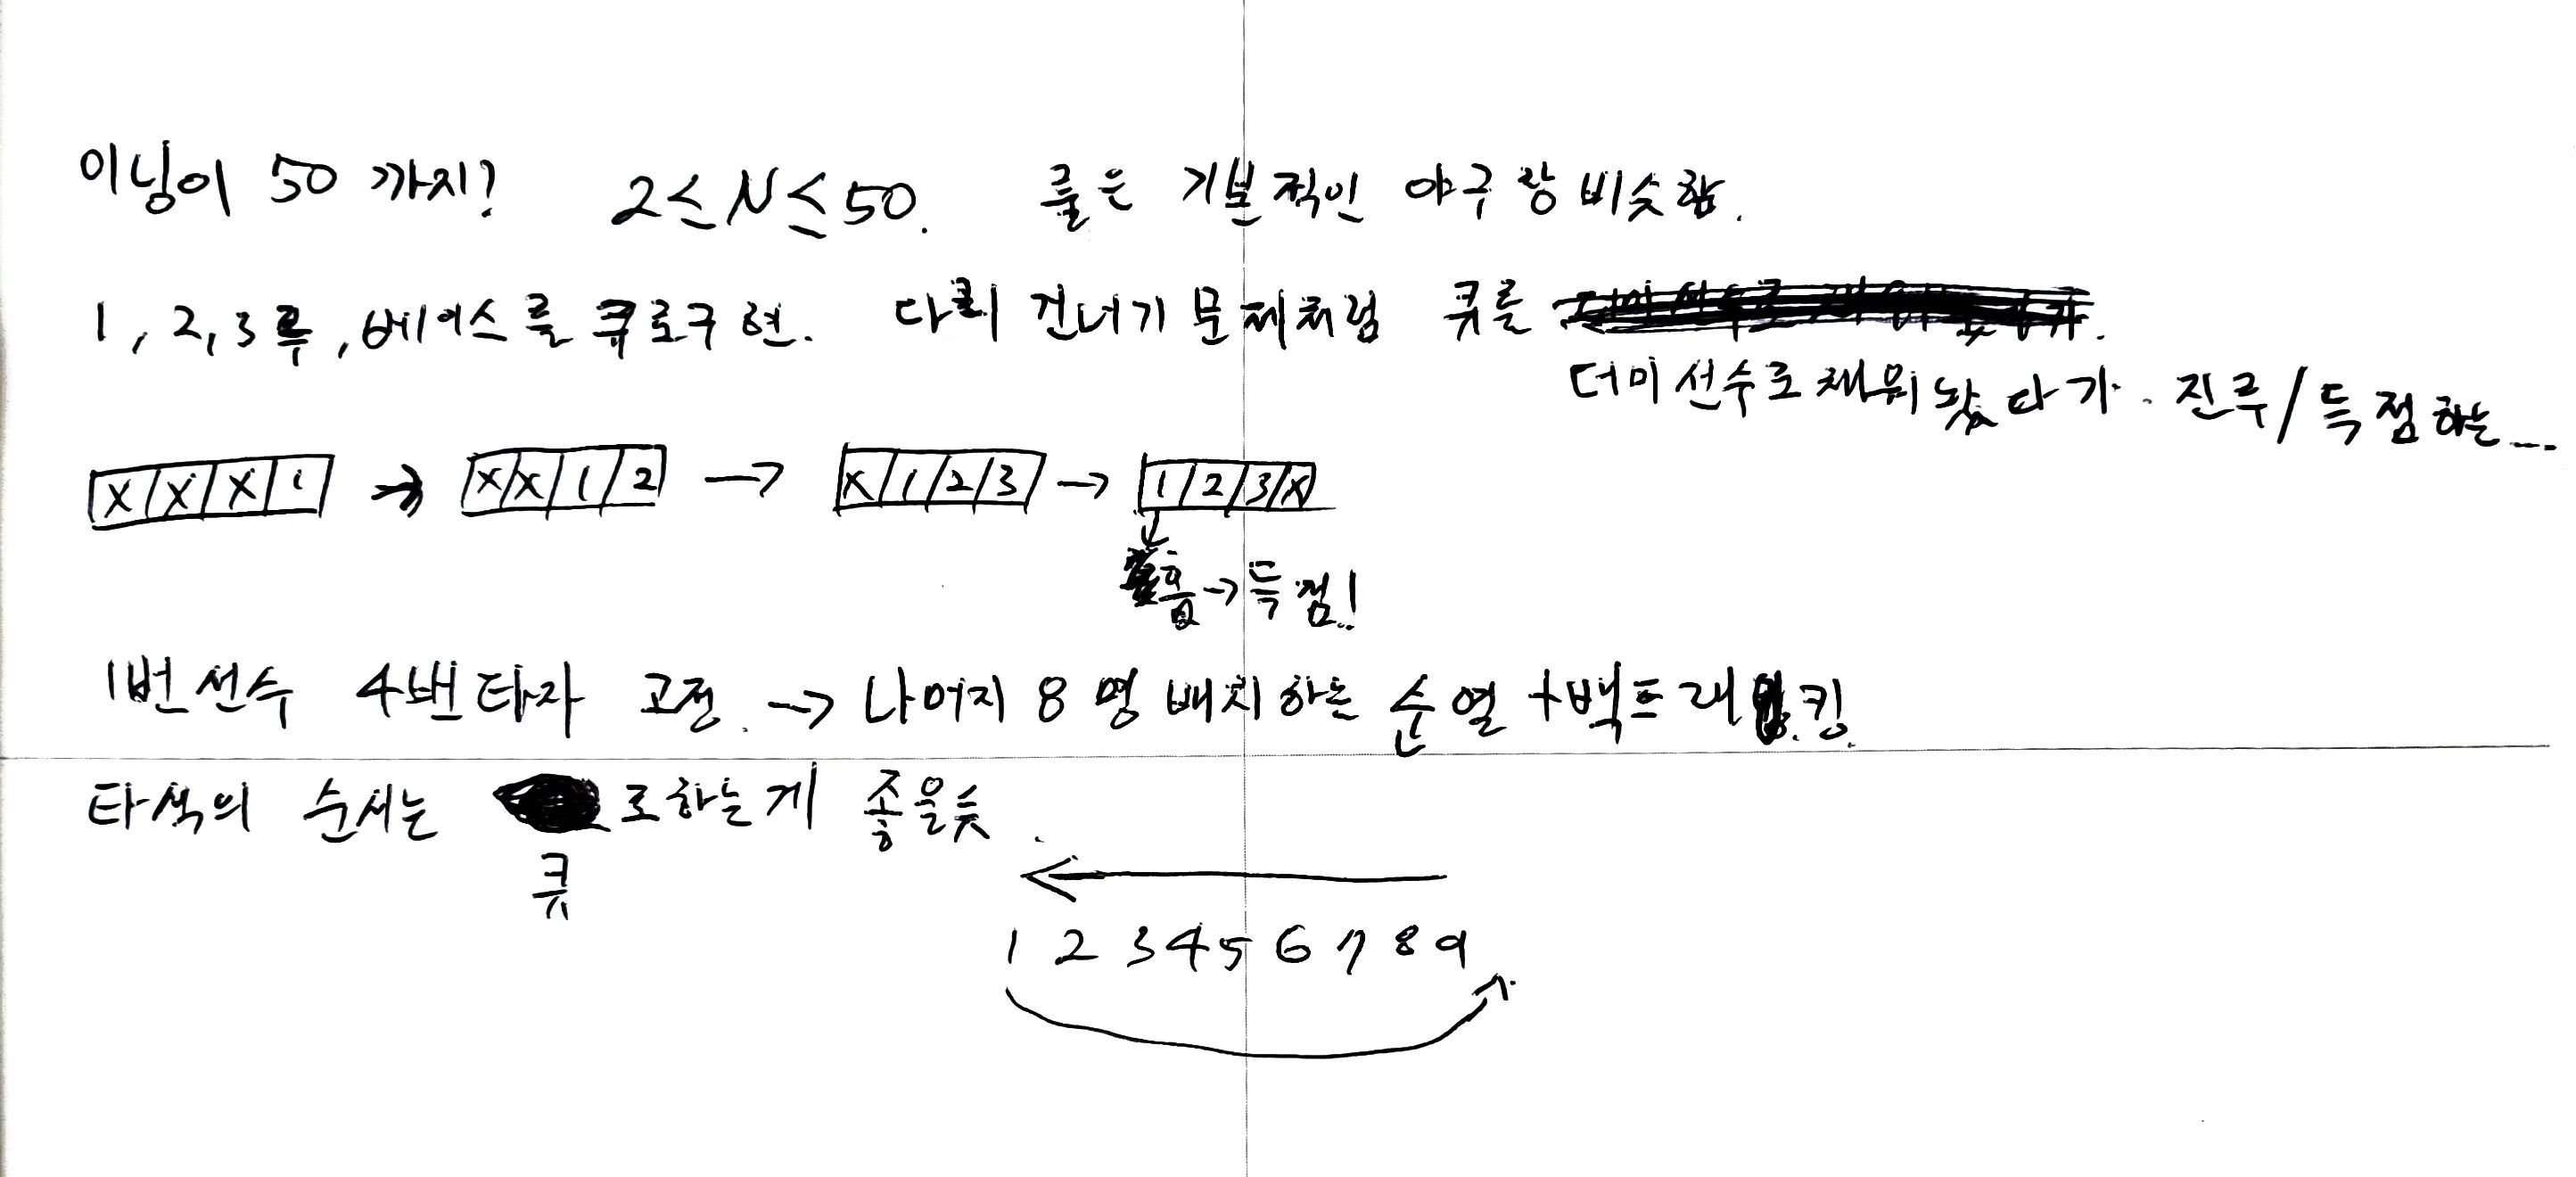 이닝이 50 까지? 2≤N≤50. 룰은 기본적인 야구랑 비슷함.
1, 2, 3루, 베이스를 큐로구현. 다리 건너기 문제처럼 큐를
더미선수로 채워놨다가. 진루/득점하는...
X X X 1 → X X 1 2 → X 1 2 3 → 1 2 3 X
홈→득점!
1번선수 4번타자 고정. → 나머지 8명 배치하는 순열+백트래킹.
타석의 순서는 로하는게 좋을듯.
큐
1 2 3 4 5 6 7 8 9